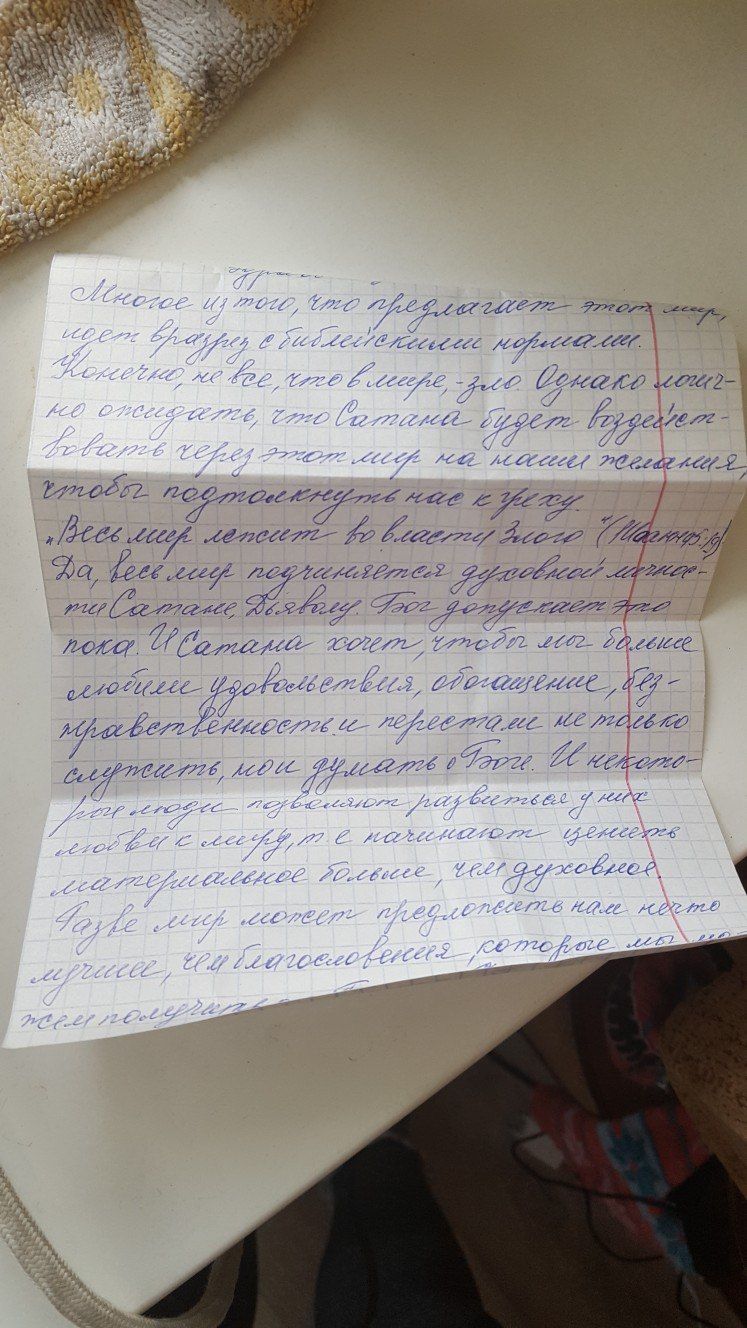 Многое из того, что предлагает этот мир,
идет вразрез с библейскими нормами.
Конечно, не все, что в мире, - зло Однако логич-
но ожидать, что Сатана будет воздейст-
вовать через этот мир на наши желания,
чтобы подтолкнуть нас к греху.
„Весь мир лежит во власти Злого" (1Иоанна5:19)
Да, весь мир подчиняется духовной личнос-
ти Сатане, Дьяволу. Бог допускает это
пока. И Сатана хочет, чтобы мы больше
любили удовольствия, обогащение, без-
нравственность и перестали не только
служить, но и думать о Боге. И некото-
рые люди позволяют развиться у них
любви к миру, т е начинают ценить
материальное больше, чем духовное.
Разве мир может предложить нам нечто
лучшее, чем благословения, которые мы мо-
жем получить